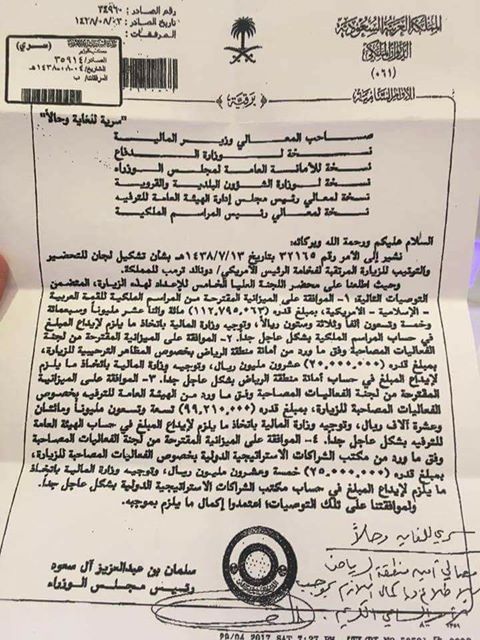 المملكة العربية السعودية
الديوان الملكي
(٠٦١)
الأوامر السامية
رقم الصادر : ٣٤٩٦٠
تاريخ الصادر : ١٤٣٨/٠٨/٠٣
المرفقات :
(سري)
الصادر/ ٣٥٩١٤
التاريخ/ ٠٤-٠٨-١٤٣٨هـ
المرفقات/ ب
برقية
"سرية للغاية وحالاً"
صاحب المعالي وزير المالية
نسخة لوزارة الدفاع
نسخة للأمانة العامة لمجلس الوزراء
نسخة لوزارة الشؤون البلدية والقروية
نسخة لمعالي رئيس مجلس إدارة الهيئة العامة للترفيه
نسخة لمعالي رئيس المراسم الملكية
السلام عليكم ورحمة الله وبركاته:
نشير إلى الأمر رقم ٣٢١٦٥ بتاريخ ١٤٣٨/٧/١٣هـ بشأن تشكيل لجان للتحضير
والترتيب للزيارة المرتقبة لفخامة الرئيس الأمريكي/ دونالد ترمب للمملكة.
وحيث اطلعنا على محضر اللجنة العليا الخامس للإعداد لهذه الزيارة، المتضمن
التوصيات التالية: ١- الموافقة على الميزانية المقترحة من المراسم الملكية للقمة العربية
– الإسلامية – الأمريكية، بمبلغ قدره (١١٢,٧٩٥,٠٦٣) مائة واثنا عشر مليوناً وسبعمائة
وخمسة وتسعون ألفاً وثلاثة وستون ريالاً، وتوجيه وزارة المالية باتخاذ ما يلزم لإيداع المبلغ
في حساب المراسم الملكية بشكل عاجل جداً. ٢- الموافقة على الميزانية المقترحة من لجنة
الفعاليات المصاحبة وفق ما ورد من أمانة منطقة الرياض بخصوص المظاهر الترحيبية للزيارة،
بمبلغ قدره (٢٠,٠٠٠,٠٠٠) عشرون مليون ريال، وتوجيه وزارة المالية باتخاذ ما يلزم
لإيداع المبلغ في حساب أمانة منطقة الرياض بشكل عاجل جداً. ٣- الموافقة على الميزانية
المقترحة من لجنة الفعاليات المصاحبة وفق ما ورد من الهيئة العامة للترفيه بخصوص
الفعاليات المصاحبة للزيارة، بمبلغ قدره (٩٩,٢١٠,٠٠٠) تسعة وتسعون مليوناً ومائتان
وعشرة آلاف ريال، وتوجيه وزارة المالية باتخاذ ما يلزم لإيداع المبلغ في حساب الهيئة العامة
للترفيه بشكل عاجل جداً. ٤- الموافقة على الميزانية المقترحة من لجنة الفعاليات المصاحبة
وفق ما ورد من مكتب الشراكات الاستراتيجية الدولية بخصوص الفعاليات المصاحبة للزيارة،
بمبلغ قدره (٢٥,٠٠٠,٠٠٠) خمسة وعشرون مليون ريال، وتوجيه وزارة المالية باتخاذ
ما يلزم لإيداع المبلغ في حساب مكتب الشراكات الاستراتيجية الدولية بشكل عاجل جداً.
ولموافقتنا على تلك التوصيات؛ اعتمدوا إكمال ما يلزم بموجبه.
سلمان بن عبدالعزيز آل سعود
رئيس مجلس الوزراء
سري للغاية وحالاً
معالي أمين منطقة الرياض
للاطلاع وإكمال اللازم بموجب
السامي الكريم
29/04 2017 SAT 7:27